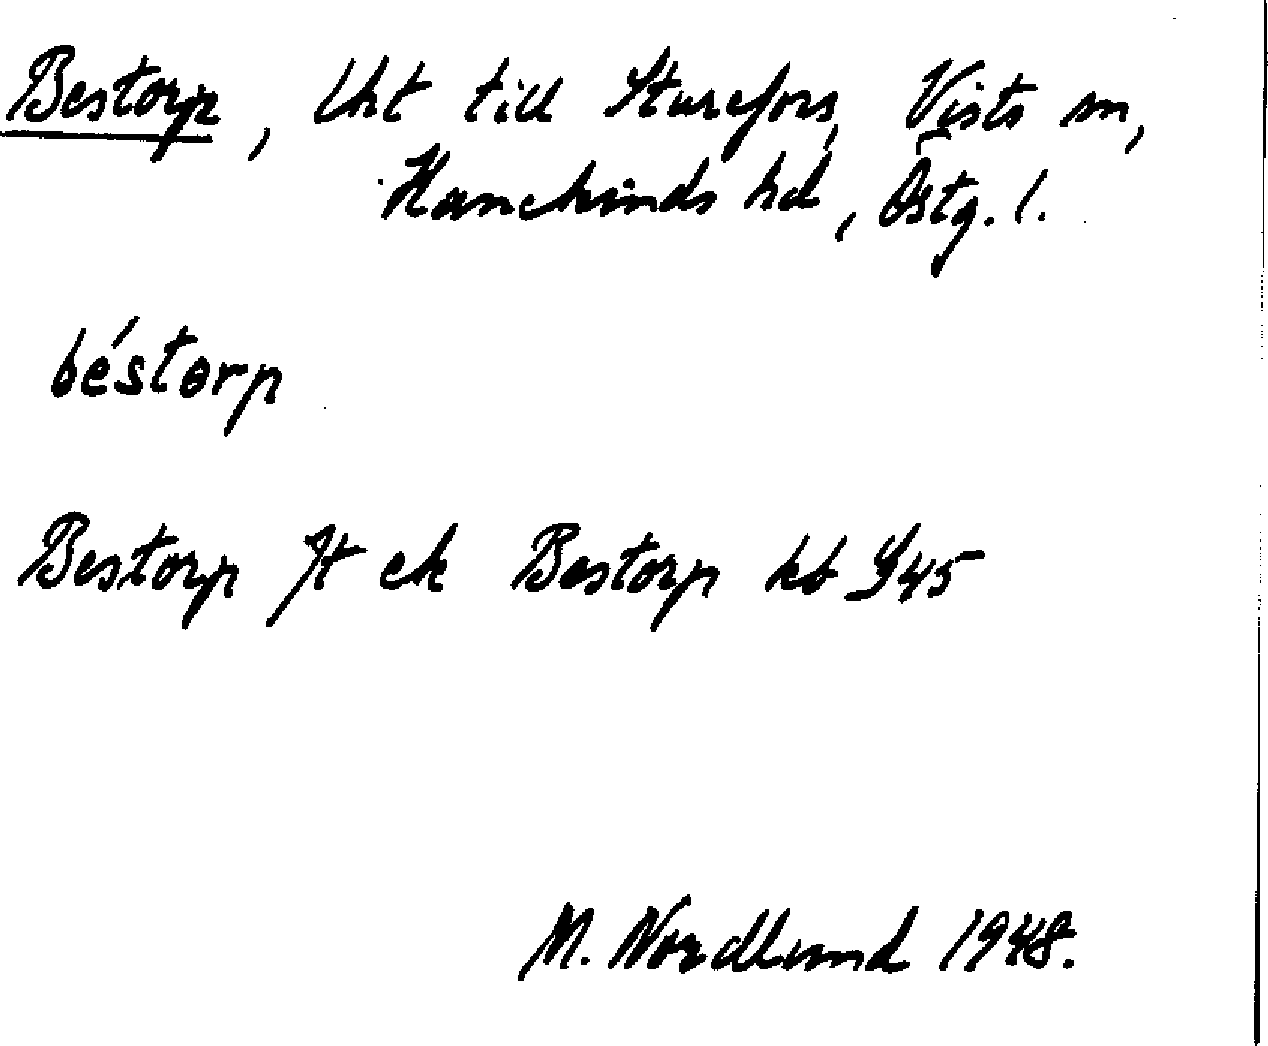 Bestorp, Uht till Sturefors, Vists sn,
Hanekinds hd, Östg. l.
béstorp
Bestorp Jt ek Bestorp kb 945
M. Nordlund 1948.